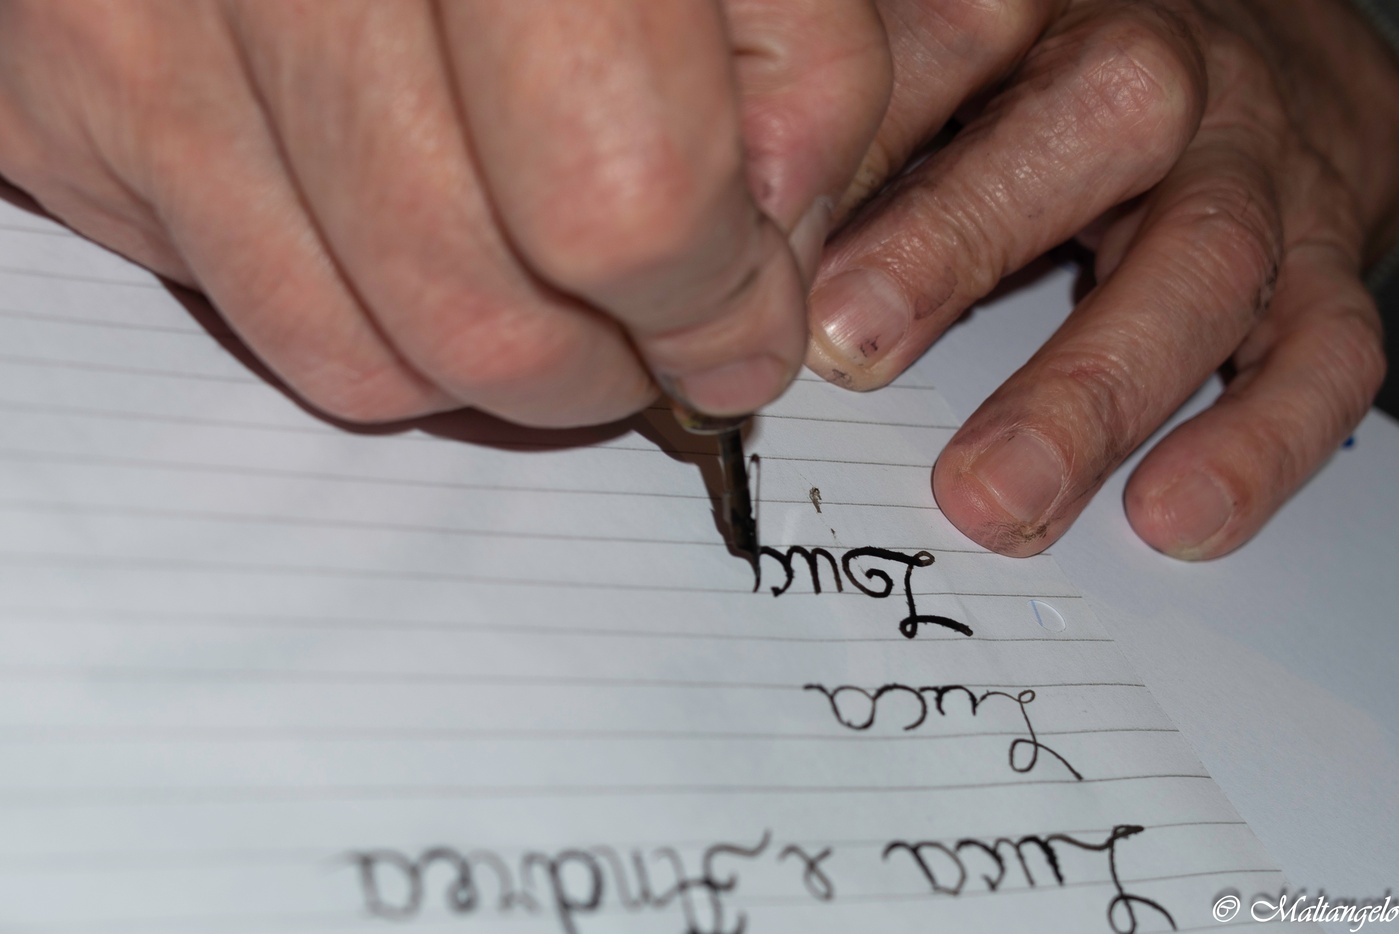 Luca e Andrea
Luca
Luca
© Maltangelo